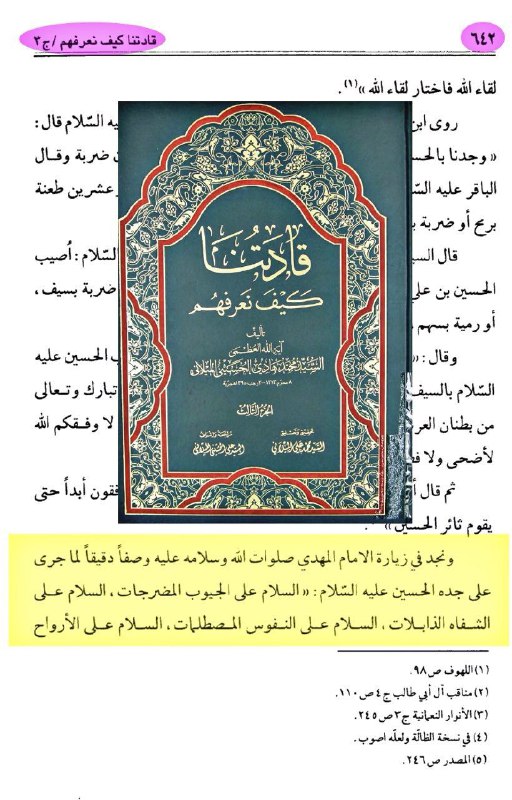 ٦٤٢
قادتنا كيف نعرفهم /ج٣
لقاء الله فاختار لقاء الله »(١).
روى ابن
يه السّلام قال :
« وجدنا بالحس
ن ضربة وقال
الباقر عليه الس
عشرين طعنة
برمح أو ضربة ب
قال السي
السّلام : أُصيب
الحسين بن علي
ضربة بسيف ،
أو رمية بسهم
وقال : «
ب الحسين عليه
السّلام بالسيف
تبارك وتعالى
من بطنان العر
لا وفـقكم الله
لأضحى ولا فط
ثم قال أ
فقون أبداً حتى
يقوم ثائر الحسين»
قادتنا
كيف نعرفهم
تأليف
آية الله العظمى
السيد محمد هادي الحسيني الميلاني
الجزء الثالث
تحقيق وتعليق
السيد محمد علي الميلاني
ونجد في زيارة الامام المهدي صلوات الله وسلامه عليه وصفاً دقيقاً لما جرى
على جده الحسين عليه السّلام : «السلام على الجيوب المضرجات ، السلام على
الشفاه الذابلات ، السلام على النفوس المصطلمات ، السلام على الأرواح
(١) اللهوف ص٩٨.
(٢) مناقب آل أبي طالب ج٤ ص١١٠.
(٣) الأنوار النعمانية ج٣ ص٢٤٥.
(٤) في نسخة الظالّة ولعلّه اصوب .
(٥) المصدر ص٢٤٦.